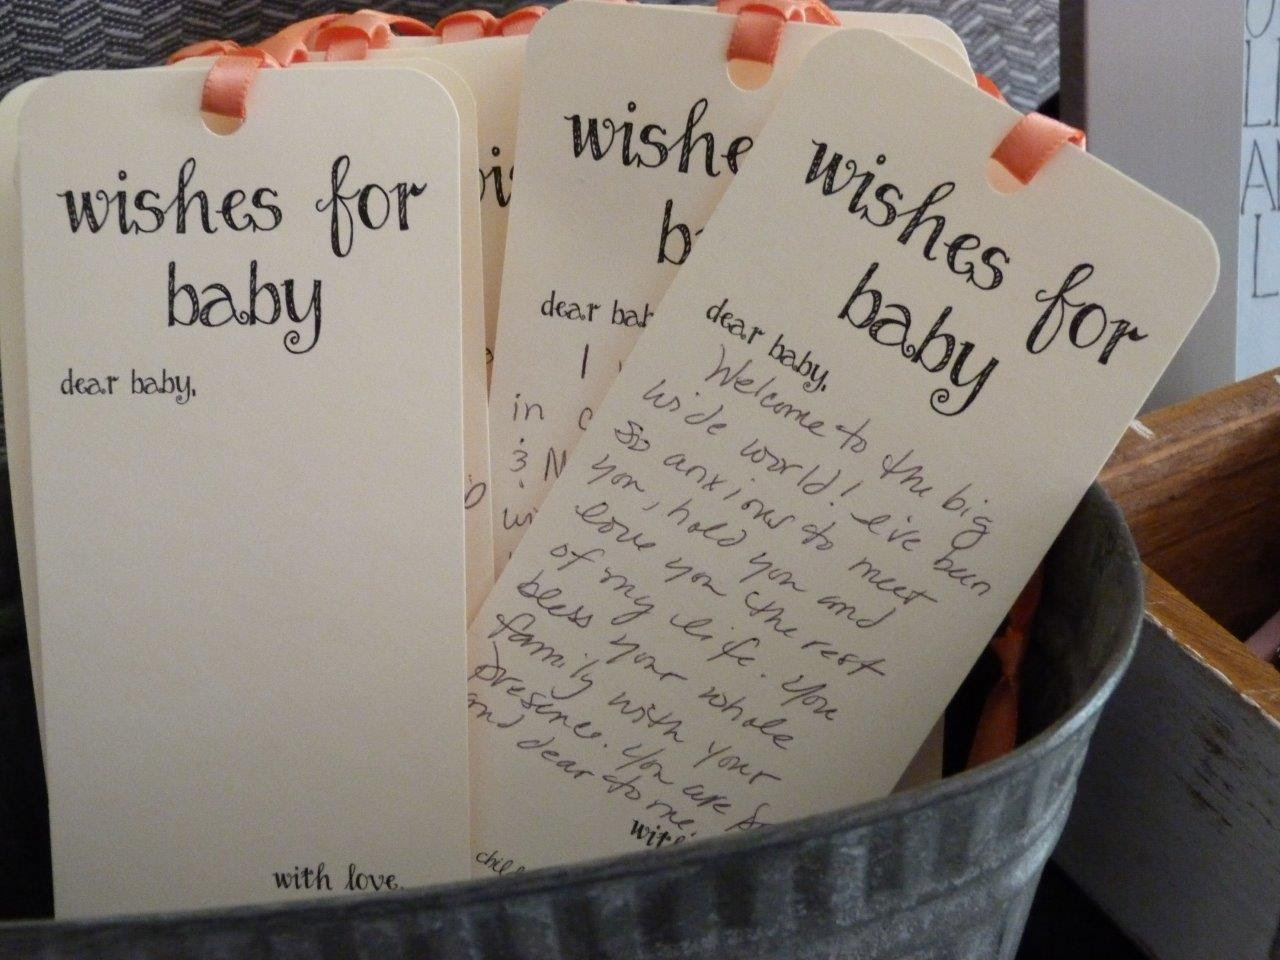 wishes for
baby
dear baby,
with love,
wishe
b
dear bab
I
in
& M
wi
wishes for
baby
dear baby,
Welcome to the big
wide world! I've been
so anxious to meet
you, hold you and
love you the rest
of my life. You
bless your whole
family with your
presence. You are so
and dear to me.
with
L
A
L